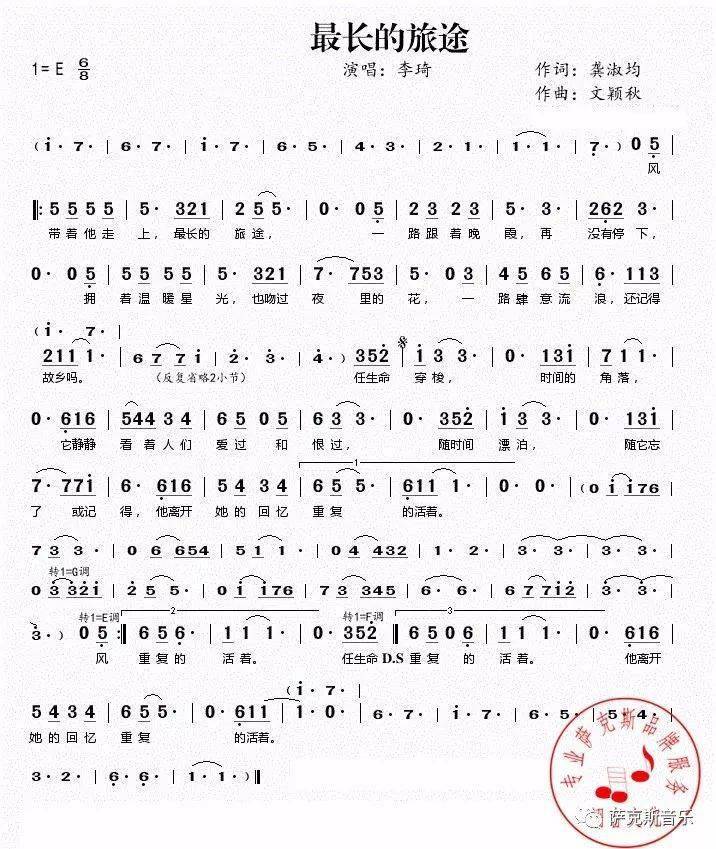 最长的旅途
1= E 6/8 演唱：李琦 作词：龚淑均
作曲：文颖秋
( i · 7 · | 6 · 7 · | i · 7 · | 6 · 5 · | 4 · 3 · | 2 · 1 · | 1 · 1 · | 7 · ) 0 5
风
‖: 5 5 5 5 | 5 · 321 | 2 5 5 · | 0 · 0 5 | 2 3 2 3 | 5 · 5 · | 262 3 · |
带着他走 上，最长的 旅途， 一 路跟着晚 霞，再 没有停下，
0 · 0 5 | 5 5 5 5 | 5 · 321 | 7 · 753 | 5 · 03 | 4 5 6 5 | 6 · 113 |
拥 着温暖星 光，也吻过 夜 里的 花，一 路肆意流 浪，还记得
( i · 7 · |
211 1 · | 6 7 7 i | 2 · 3 · | 4 · ) 352 | i 3 3 · | 0 · 13i | 7 1 1 · |
故乡吗。 (反复省略2小节) 任生命 穿梭， 时间的 角落，
0 · 616 | 544 3 4 | 6 5 0 5 | 6 3 3 · | 0 · 352 | i 3 3 · | 0 · 13i |
它静静 看着人们 爱过和 恨过， 随时间 漂泊， 随它忘
1
7 · 77i | 6 · 616 | 54 34 | 6 5 5 · | 611 1 · | 0 · 0 · | ( 0 i i76 |
了 或记 得，他离开 她的回忆 重复 的活着。
7 3 3 · | 0 6 654 | 5 1 1 · | 0 4 432 | 1 · 2 · | 3 · 3 · | 3 · 3 · |
转1=G调
0 3 32i | 2 5 5 · | 0 i i76 | 7 3 345 | 6 · 6 · | 6 77i2 | 3 · 3 · |
转1=E调 2 转1=F调 3
3 · ) 0 5 :‖ 6 5 6 · | 1 1 1 · | 0 · 352 ‖ 6 506 | 1 1 1 · | 0 · 616 |
风 重复的 活着。 任生命 D.S 重复的 活着。 他离开
( i · 7 · |
5 4 3 4 | 6 5 5 · | 0 · 611 | 1 · 0 · | 6 · 7 · | i · 7 · | 6 · 5 · | 4 · 3 ·
她的回忆 重复 的活着。
3 · 2 · | 6 · 6 · | 1 · 1 · ) ‖
专业萨克斯品牌服务
萨克斯音乐